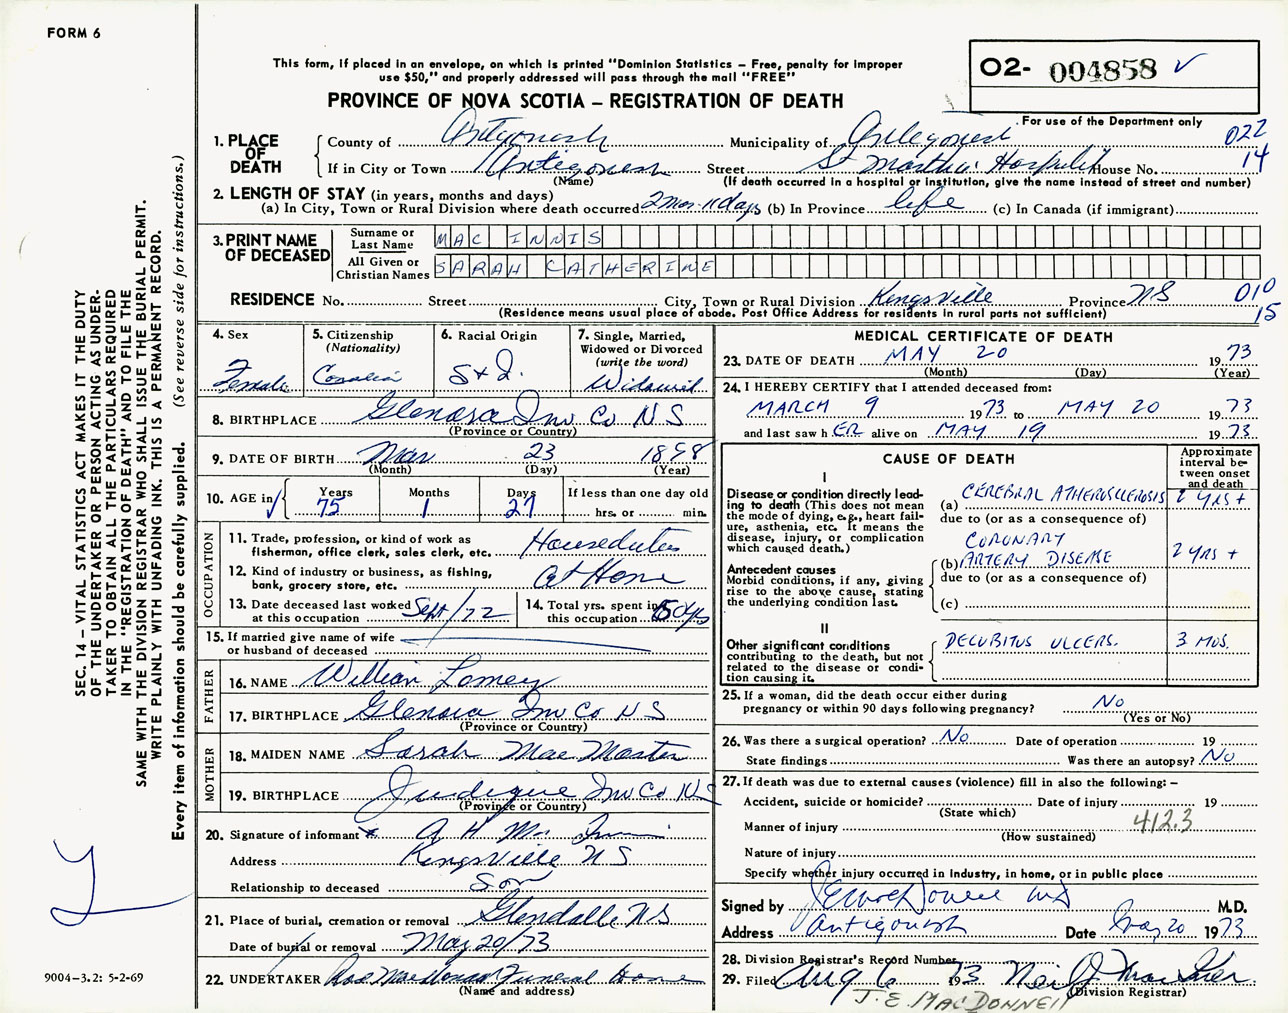 FORM 6
This form, if placed in an envelope, on which is printed "Dominion Statistics – Free, penalty for improper
use $50," and properly addressed will pass through the mail "FREE"
O2- 004858
PROVINCE OF NOVA SCOTIA – REGISTRATION OF DEATH
For use of the Department only
022
14
1. PLACE OF DEATH
County of Antigonish Municipality of Antigonish
If in City or Town Antigonish Street St Martha's Hospital House No.
(Name) (If death occurred in a hospital or institution, give the name instead of street and number)
2. LENGTH OF STAY (in years, months and days)
(a) In City, Town or Rural Division where death occurred 2 mos. 11 days (b) In Province life (c) In Canada (if immigrant)
3. PRINT NAME OF DECEASED
Surname or Last Name MAC INNIS
All Given or Christian Names SARAH CATHERINE
RESIDENCE No. Street City, Town or Rural Division Kingsville Province NS 010
15
(Residence means usual place of abode. Post Office Address for residents in rural parts not sufficient)
4. Sex
Female
5. Citizenship
(Nationality)
6. Racial Origin
7. Single, Married,
Widowed or Divorced
(write the word)
Widowed
8. BIRTHPLACE Glenora Inv Co N S
(Province or Country)
9. DATE OF BIRTH Mar 23 1898
(Month) (Day) (Year)
10. AGE in
Years 75
Months 1
Days 27
If less than one day old
hrs. or min.
OCCUPATION
11. Trade, profession, or kind of work as
fisherman, office clerk, sales clerk, etc. Houseduties
12. Kind of industry or business, as fishing,
bank, grocery store, etc. At Home
13. Date deceased last worked
at this occupation Sept/72
14. Total yrs. spent in
this occupation
15. If married give name of wife
or husband of deceased
FATHER
16. NAME William Lamey
17. BIRTHPLACE Glenora Inv Co N S
(Province or Country)
MOTHER
18. MAIDEN NAME Sarah Mac Master
19. BIRTHPLACE Judique Inv Co NS
(Province or Country)
20. Signature of informant A H Mac Innis
Address Kingsville N S
Relationship to deceased Son
21. Place of burial, cremation or removal Glendale N S
Date of burial or removal May 20/73
22. UNDERTAKER MacDonald Funeral Home
(Name and address)
MEDICAL CERTIFICATE OF DEATH
23. DATE OF DEATH MAY 20 1973
(Month) (Day) (Year)
24. I HEREBY CERTIFY that I attended deceased from:
MARCH 9 1973 to MAY 20 1973
and last saw h ER alive on MAY 19 1973
CAUSE OF DEATH
Approximate
interval be-
tween onset
and death
I
Disease or condition directly lead-
ing to death (This does not
mean the mode of dying, e.g., heart fail-
ure, asthenia, etc. It means the
disease, injury, or complication
which caused death.)
(a) CEREBRAL ATHEROSCLEROSIS 2 YRS +
due to (or as a consequence of)
CORONARY
(b) ARTERY DISEASE 2 YRS +
due to (or as a consequence of)
(c)
Antecedent causes
Morbid conditions, if any, giving
rise to the above cause, stating
the underlying condition last.
II
Other significant conditions
contributing to the death, but not
related to the disease or condi-
tion causing it.
DECUBITUS ULCERS. 3 MOS.
25. If a woman, did the death occur either during
pregnancy or within 90 days following pregnancy? No
(Yes or No)
26. Was there a surgical operation? No Date of operation 19
State findings Was there an autopsy? No
27. If death was due to external causes (violence) fill in also the following: –
Accident, suicide or homicide? Date of injury 19
(State which)
Manner of injury 412.3
(How sustained)
Nature of injury
Specify whether injury occurred in industry, in home, or in public place
Signed by J E MacDonnell MD M.D.
Address Antigonish Date May 20 1973
28. Division Registrar's Record Number
29. Filed Aug 6 1973
(Division Registrar)
J. E. MACDONNELL
SEC. 14 – VITAL STATISTICS ACT MAKES IT THE DUTY
OF THE UNDERTAKER OR PERSON ACTING AS UNDER-
TAKER TO OBTAIN ALL THE PARTICULARS REQUIRED
IN THE "REGISTRATION OF DEATH" AND TO FILE THE
SAME WITH THE DIVISION REGISTRAR WHO SHALL ISSUE THE BURIAL PERMIT.
WRITE PLAINLY WITH UNFADING INK. THIS IS A PERMANENT RECORD.
Every item of information should be carefully supplied. (See reverse side for instructions.)
9004–3.2: 5-2-69